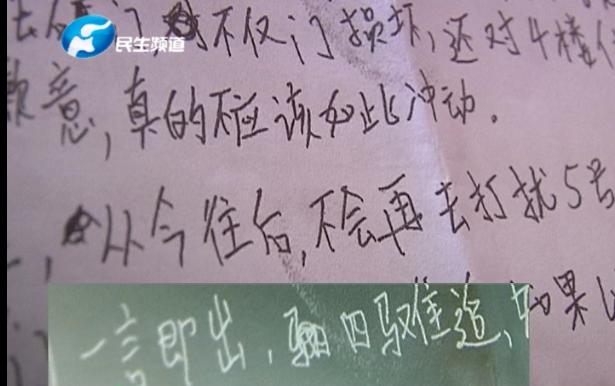 民生频道
不仅门损坏,还对4楼住
歉意,真的不应该如此冲动。
从今往后,不会再去打扰5号
一言即出,驷四驭难追,如果